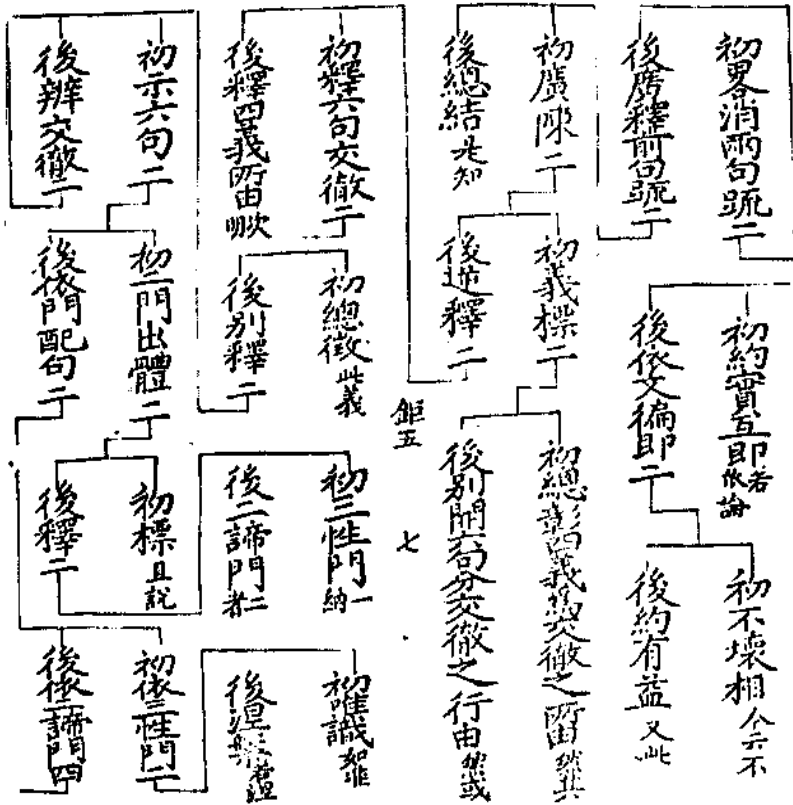 初畧消兩句䟽二
後廣釋前句䟽二
初約實互即 若依論
後依文偏即二
初不壞相 今六不
後約有益 又此
初廣陳二
後總結 是知
初義標二
後進釋二
初總彰四義為交徹之所由
後別開六句分交徹之行由
鉅五
七
初釋六句交徹二
後釋四義所由
初總徵 此義
後別釋二
初三性門 一
後二諦門 者二
初唯識
後涅槃
初示六句二
後辨交徹二
初二門出體二
後依門配句二
初標 且說
後釋二
初依三性門二
後依二諦門四